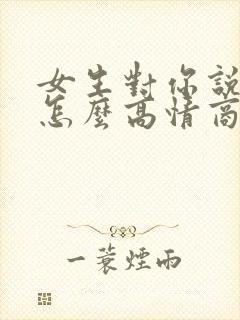 女生對你說
怎麼高情商
一蓑煙雨